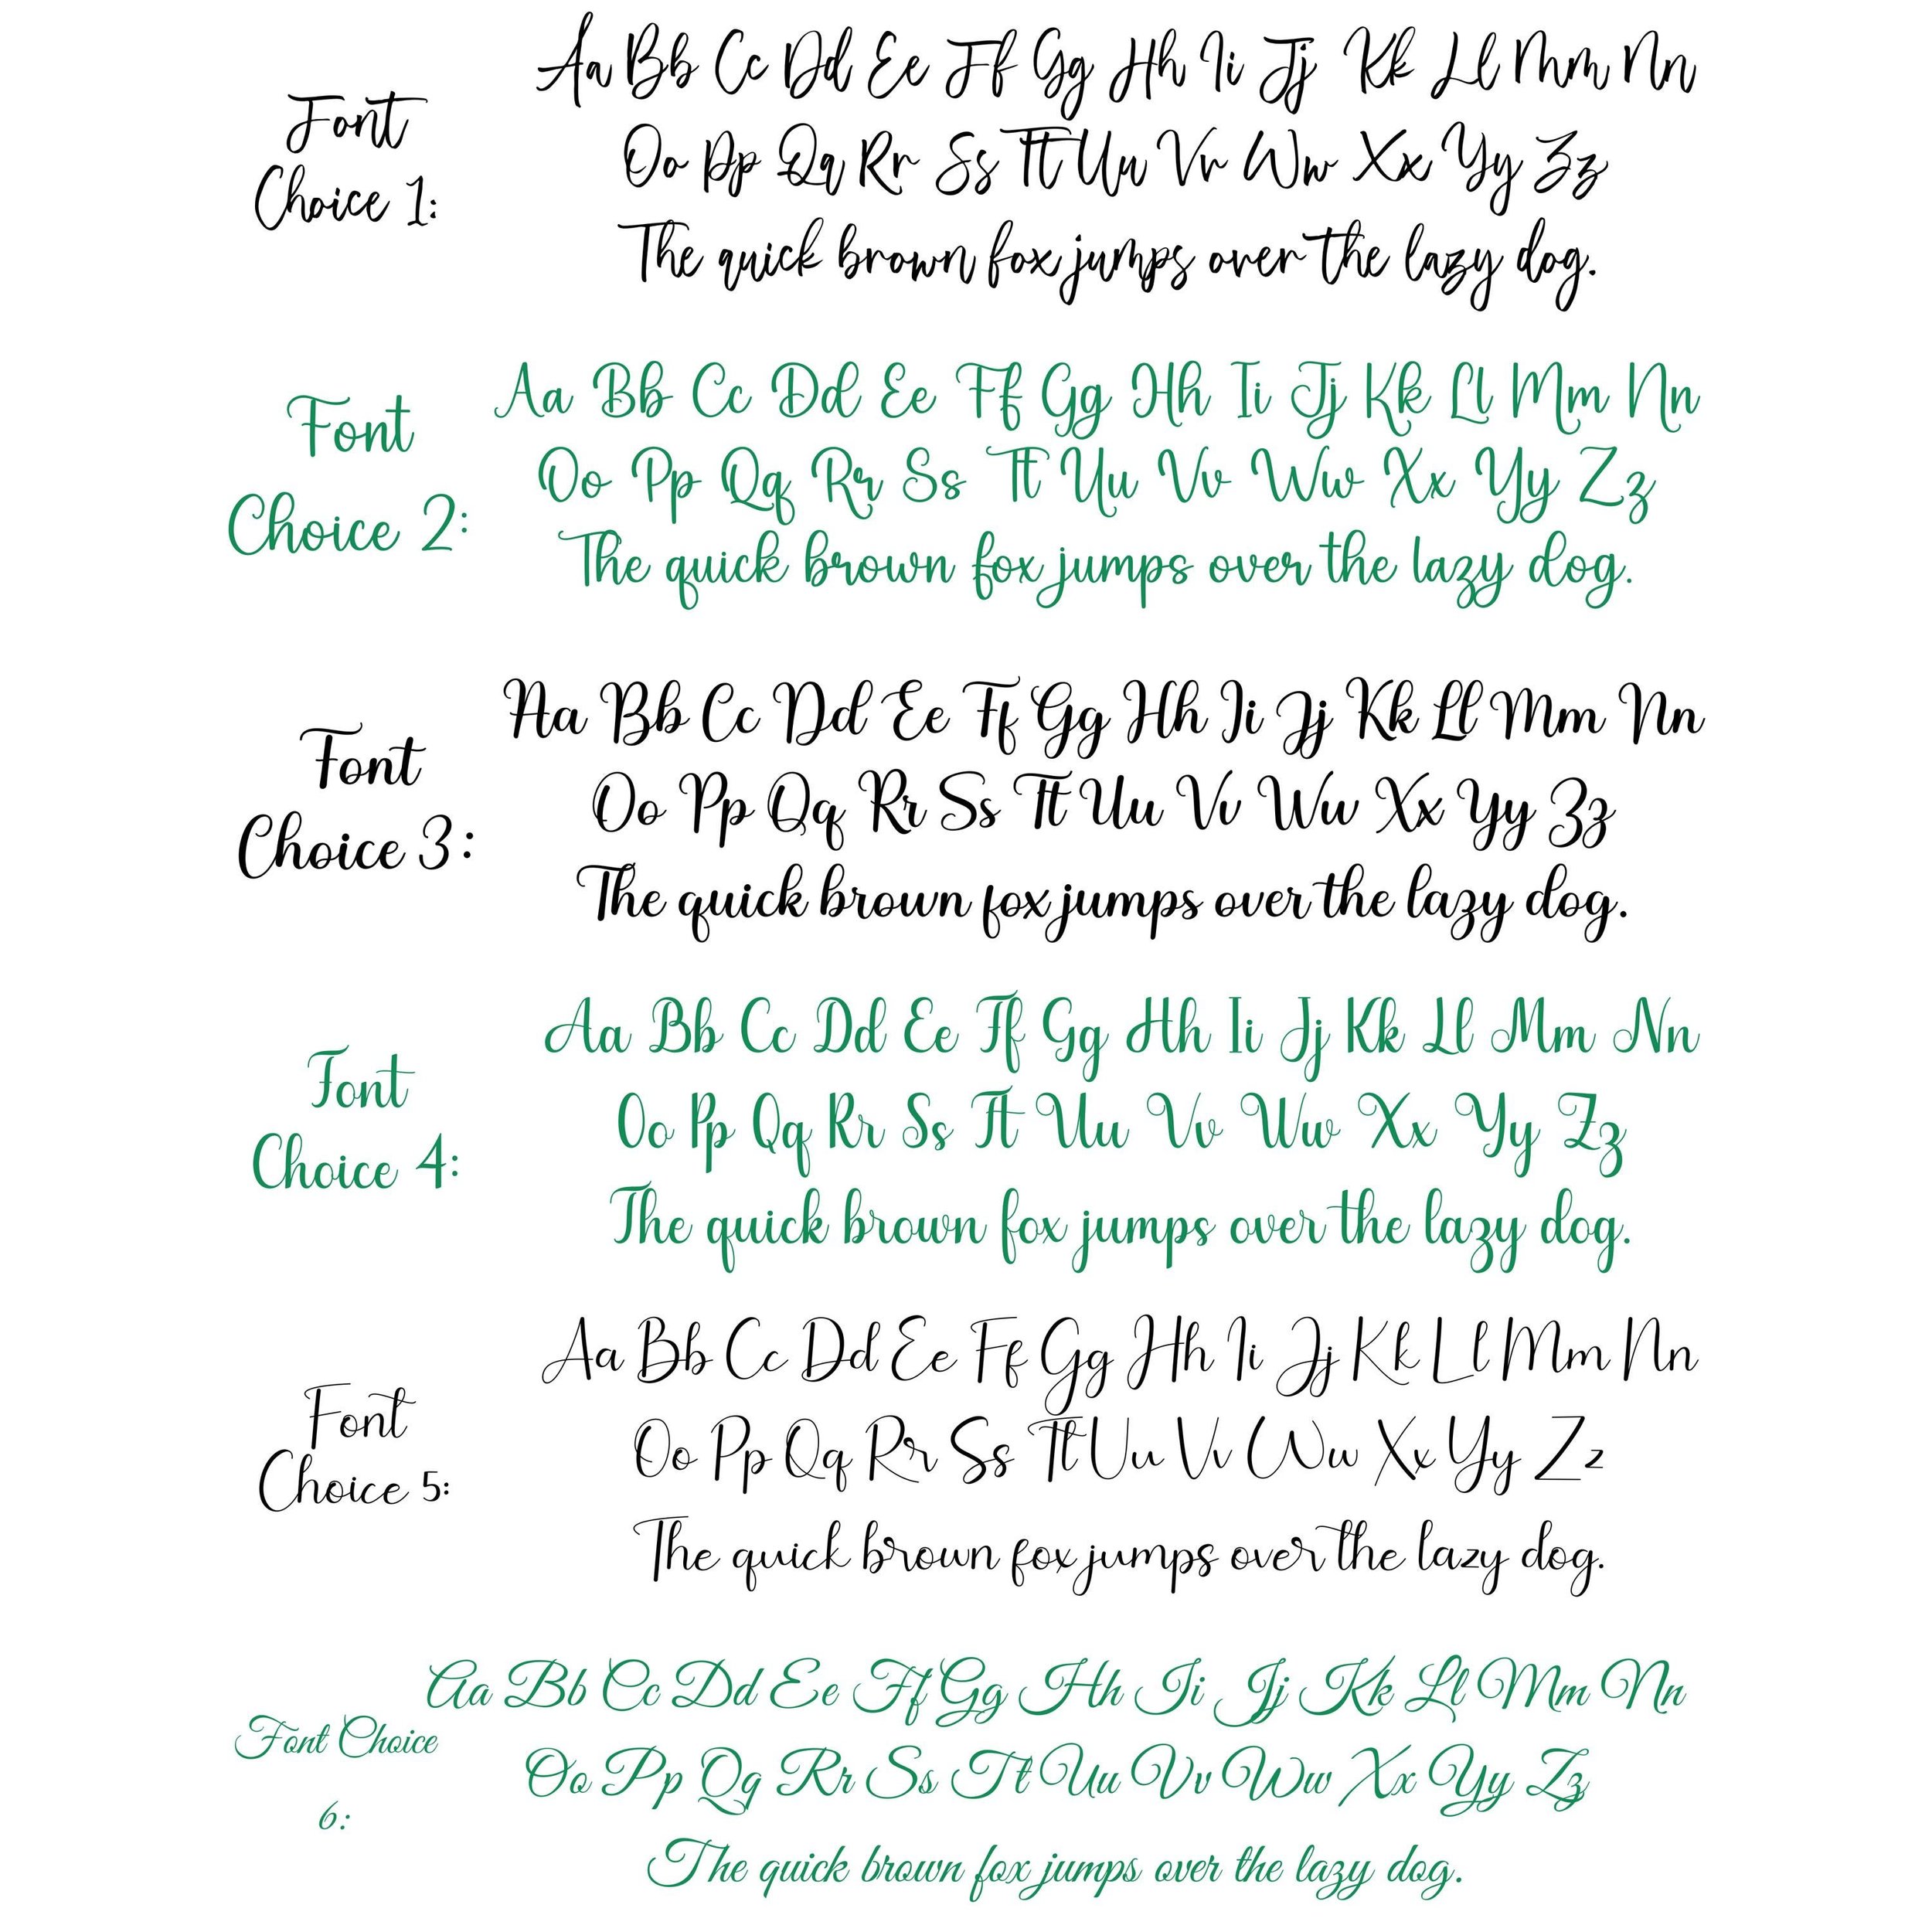 Font
Choice 1:
Aa Bb Cc Dd Ee Ff Gg Hh Ii Jj Kk Ll Mm Nn
Oo Pp Qq Rr Ss Tt Uu Vv Ww Xx Yy Zz
The quick brown fox jumps over the lazy dog.
Font
Choice 2:
Aa Bb Cc Dd Ee Ff Gg Hh Ii Jj Kk Ll Mm Nn
Oo Pp Qq Rr Ss Tt Uu Vv Ww Xx Yy Zz
The quick brown fox jumps over the lazy dog.
Font
Choice 3:
Aa Bb Cc Dd Ee Ff Gg Hh Ii Jj Kk Ll Mm Nn
Oo Pp Qq Rr Ss Tt Uu Vv Ww Xx Yy Zz
The quick brown fox jumps over the lazy dog.
Font
Choice 4:
Aa Bb Cc Dd Ee Ff Gg Hh Ii Jj Kk Ll Mm Nn
Oo Pp Qq Rr Ss Tt Uu Vv Ww Xx Yy Zz
The quick brown fox jumps over the lazy dog.
Font
Choice 5:
Aa Bb Cc Dd Ee Ff Gg Hh Ii Jj Kk Ll Mm Nn
Oo Pp Qq Rr Ss Tt Uu Vv Ww Xx Yy Zz
The quick brown fox jumps over the lazy dog.
Font Choice
6:
Aa Bb Cc Dd Ee Ff Gg Hh Ii Jj Kk Ll Mm Nn
Oo Pp Qq Rr Ss Tt Uu Vv Ww Xx Yy Zz
The quick brown fox jumps over the lazy dog.